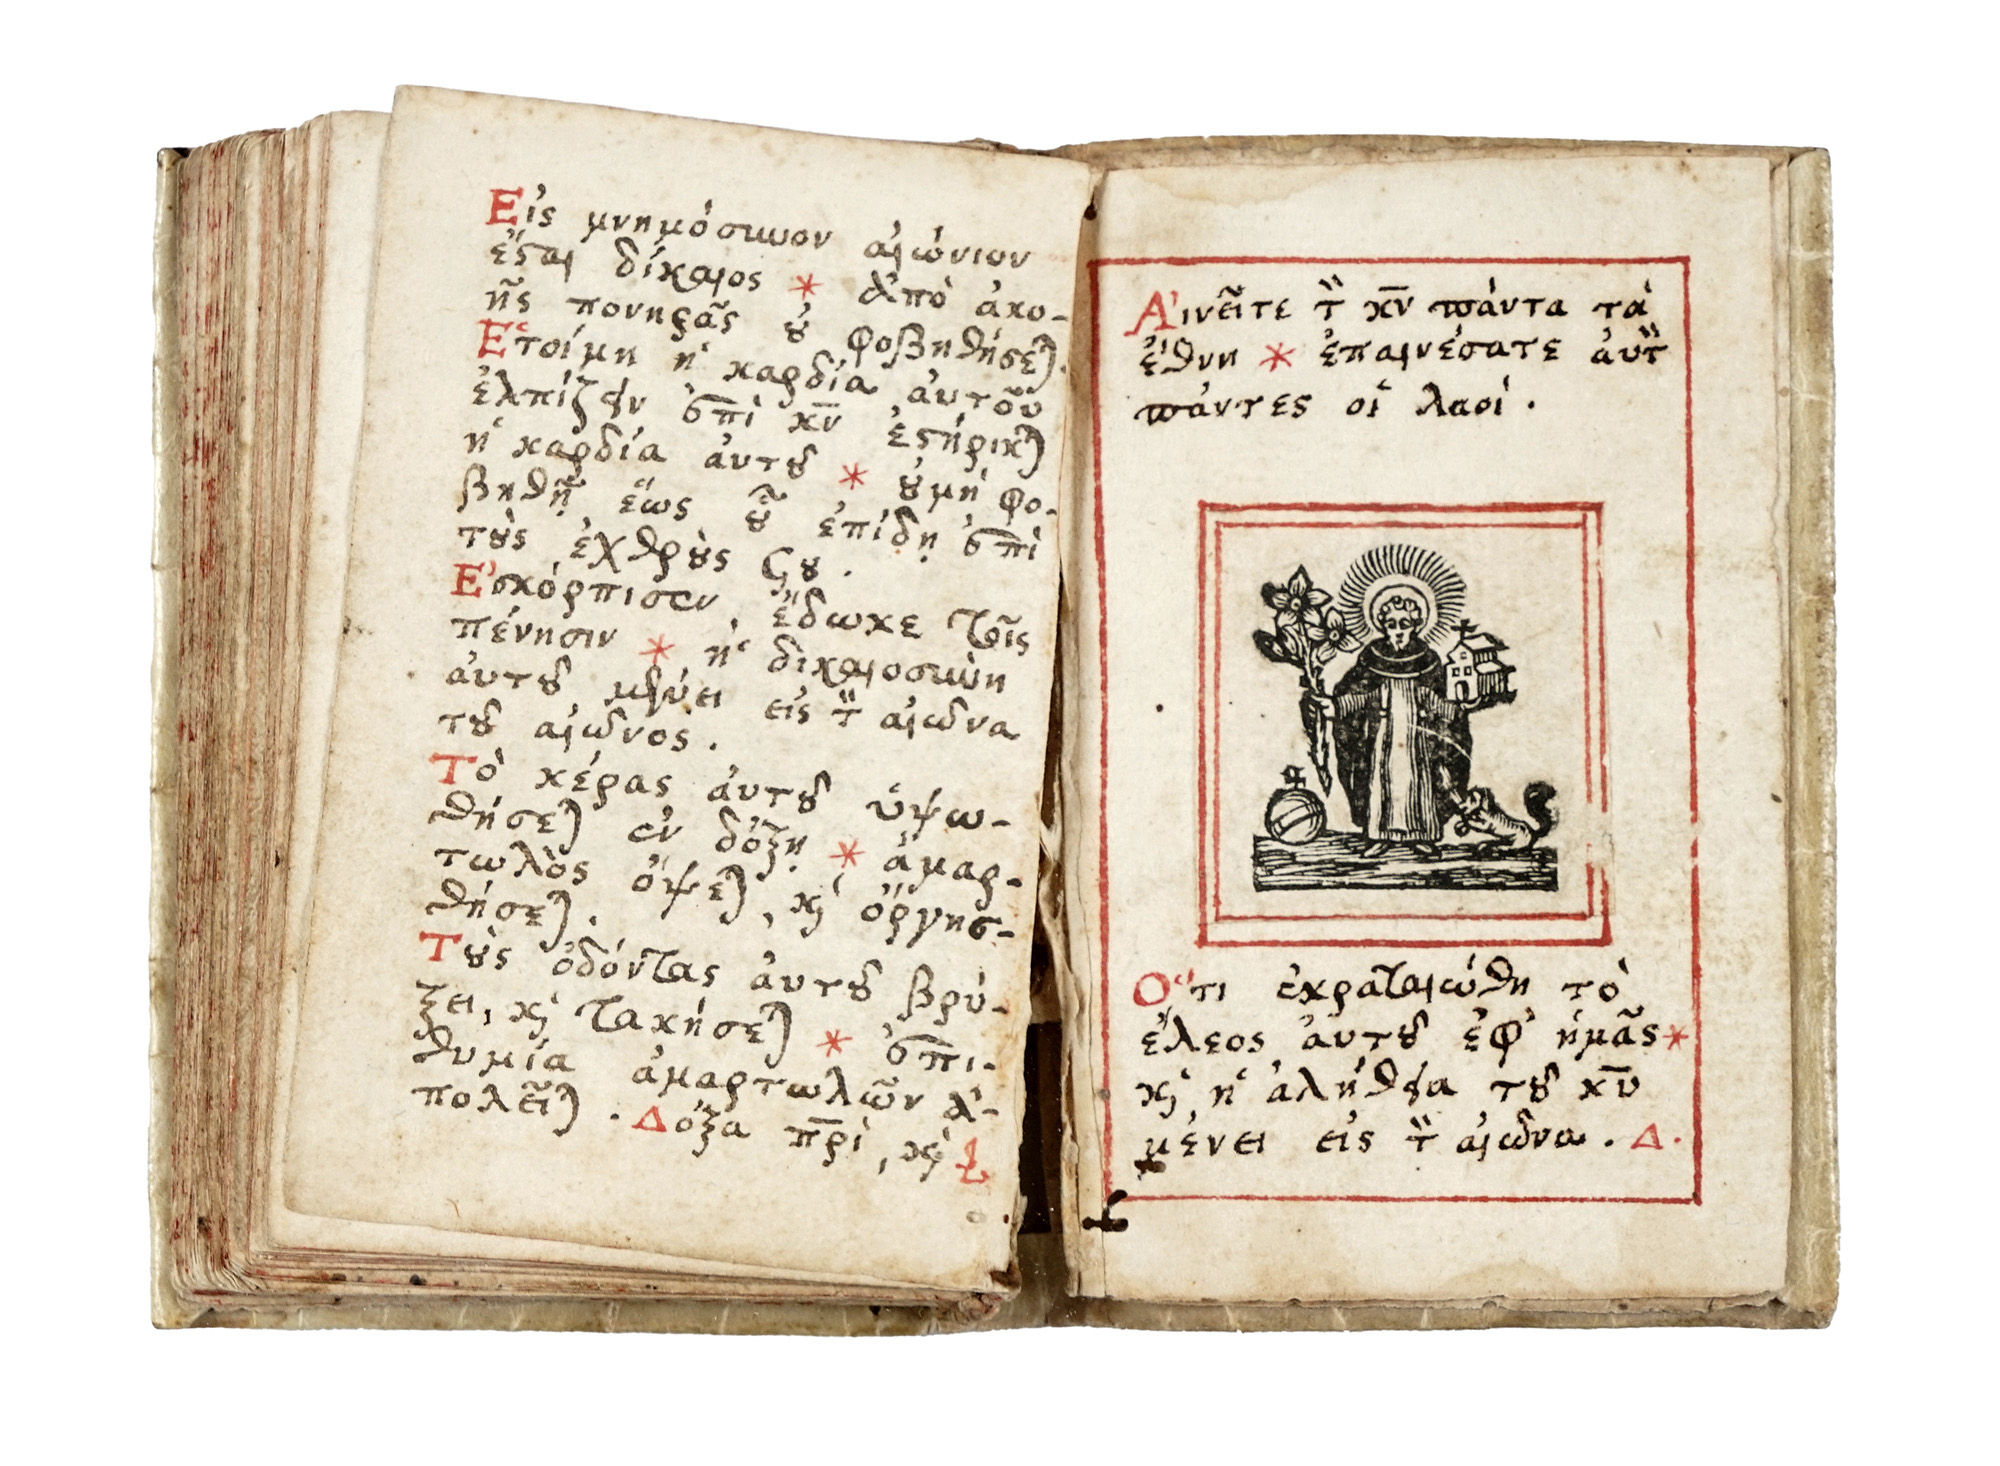 Εἰς μνημόσυνον αἰώνιον
ἔσται δίκαιος * ἀπὸ ἀκο-
ῆς πονηρᾶς ȣ̓ φοβηθήσε).
Ἑτοίμη ἡ καρδία αὐτοῦ
ἐλπίζειν ἐπὶ κ̅ν̅ ἐστήρικ)
ἡ καρδία ἀυτȣ͂ * ȣ̓ μὴ φο-
βηθῇ ἕως ȣ̓͂ ἐπίδῃ ἐπὶ
τȣ̀ς ἐχθρȣ̀ς σȣ.
Ἐσκόρπισεν, ἔδωκε τοῖς
πένησιν * ἡ δικαιοσύνη
ἀυτȣ͂ μένει εἰς τ̏ αἰῶνα
τȣ͂ αἰῶνὸς.
Τὸ κέρας ἀυτȣ͂ ὑψω-
θήσε) ἐν δόξῃ * ἁμαρ-
τωλὸς ὄψε), κ̀ ὀργησ-
θήσε).
Τȣ̀ς ὀδόντας ἀυτȣ͂ βρύ-
ξει, κ̀ τακήσε) * ἐπι-
θυμία ἁμαρτωλῶν ἀ-
πολεῖ). Δόξα π̅ρ̅ὶ, κ̀
Αἰνεῖτε τ̏ κ̅ν̅ πάντα τὰ
ἔθνη * ἐπαινέσατε ἀυτ̏
πάντες οἱ λαοὶ.
Ὅτι ἐκραταιώθη τὸ
ἔλεος ἀυτȣ͂ ἐφ' ἡμᾶς *
κ̀ ἡ ἀλήθεια τȣ͂ κ̅υ̅
μένει εἰς τ̏ αἰῶνα. Δ.